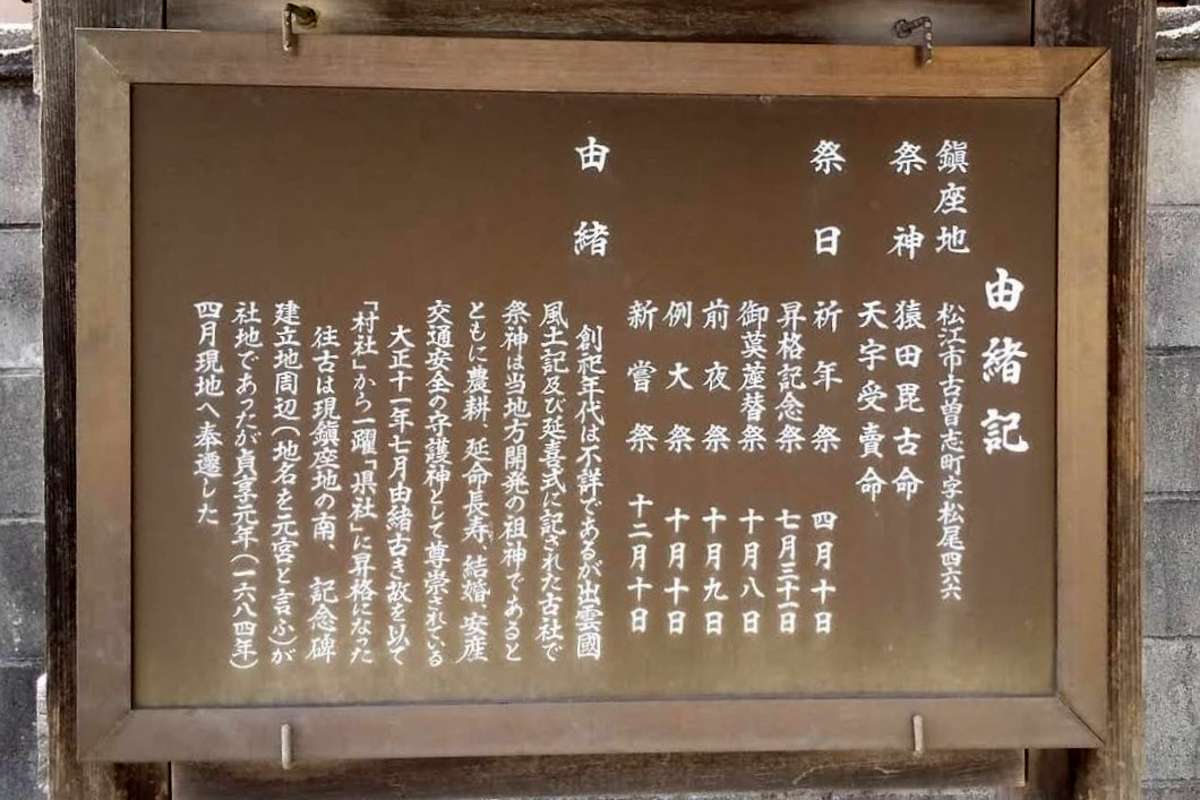 由緒記
鎭座地 松江市古曽志町字松尾四六六
祭神 猿田毘古命
天宇受賣命
祭日 祈年祭 四月十日
昇格記念祭 七月三十一日
御茣蓙替祭 十月八日
前夜祭 十月九日
例大祭 十月十日
新嘗祭 十二月十日
由緒 創祀年代は不詳であるが出雲國
風土記及び延喜式に記された古社で
祭神は当地方開発の祖神であると
ともに農耕、延命長寿、結婚、安産
交通安全の守護神として尊崇されている
大正十一年七月由緒古き故を以て
「村社」から一躍「県社」に昇格になった
往古は現鎮座地の南、記念碑
建立地周辺(地名を元宮と言ふ)が
社地であったが貞享元年(一六八四年)
四月現地へ奉遷した